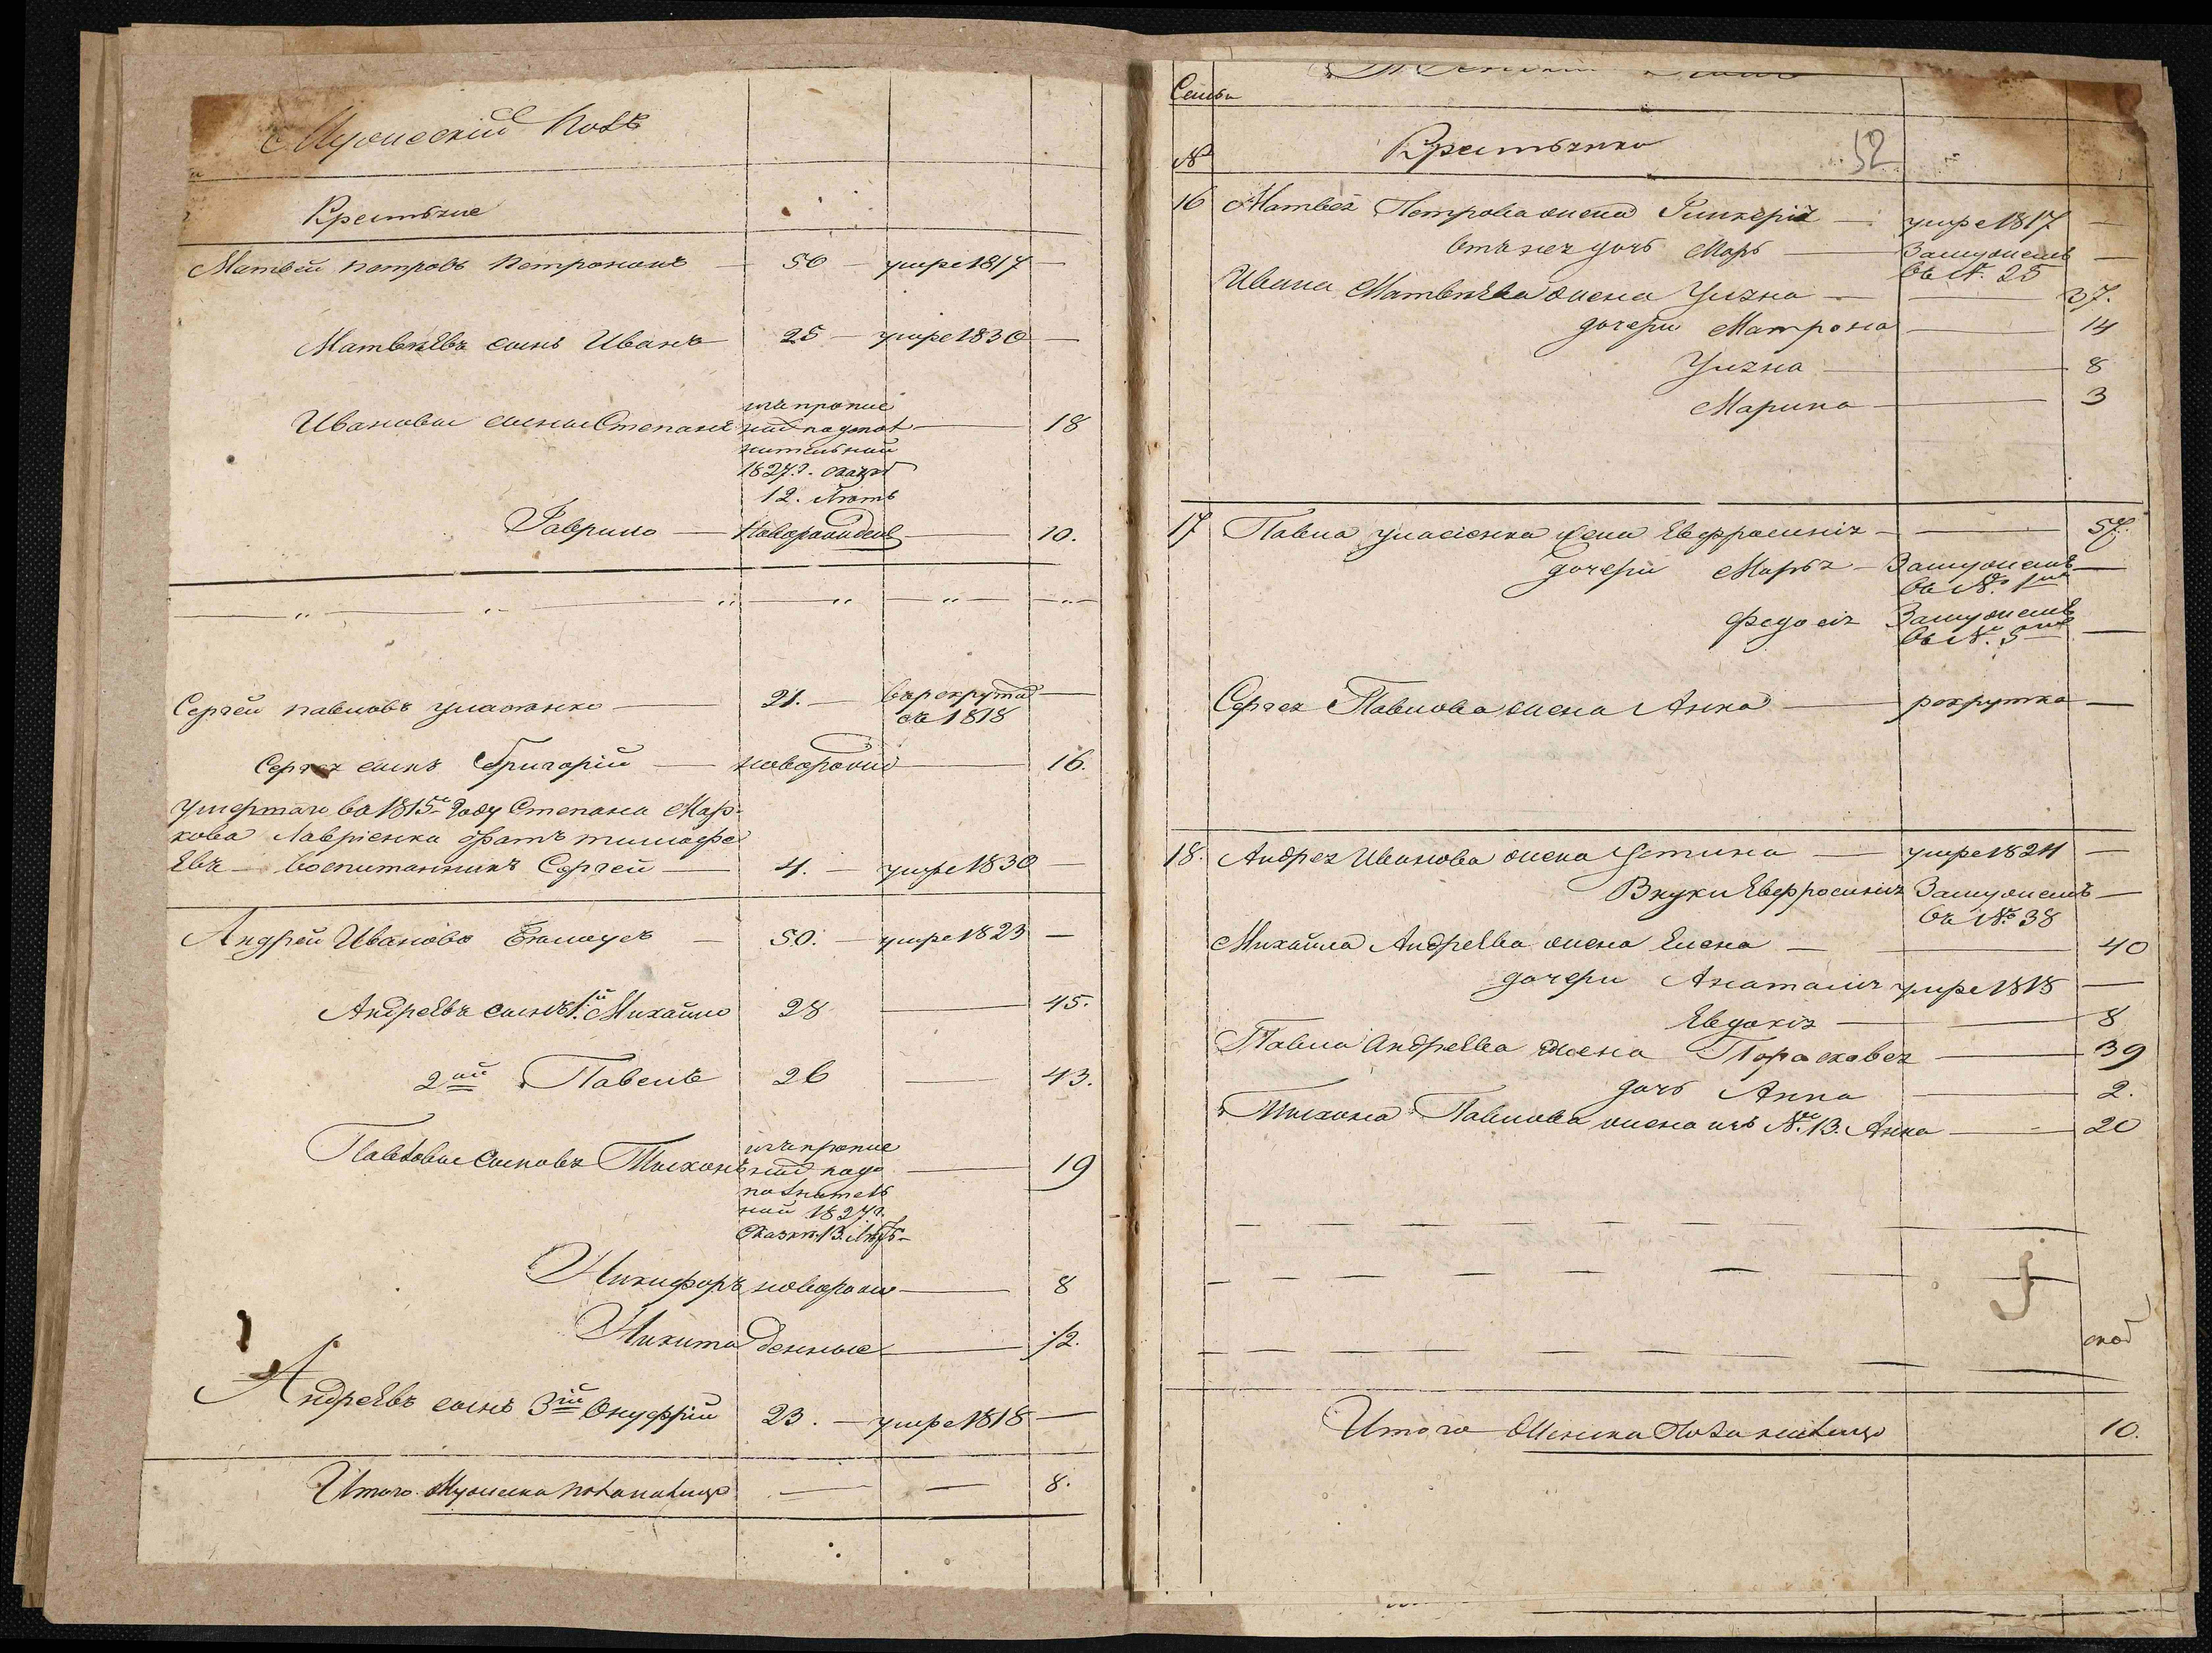 Мужескій полъ
Крестьяне
Матвей петровъ петронокъ — 50 — умре 1817 —
Матвѣевъ сынъ Иванъ 25 — умре 1830 —
Ивановы сыны Степанъ изъ пропис 18
ной по допол
нительной
1827 г. сказкѣ
12. лѣтъ
Гаврило — Новорожденъ — 10.
Сергей павловъ — 21. — въ рекрутѣ —
съ 1818
Сергея сынъ Григорій — новорожд — 16.
умершаго въ 1815 Году Степана Мар-
кова Лавріенка братъ тимофе
евъ — воспитанникъ Сергей — 4. — умре 1830 —
Андрей Ивановъ Бѣлоусъ — 50. — умре 1823 —
Андреевъ сынъ 1й Михайло 28 — 45.
2ой Павелъ 26 — 43.
Павловы сыновья Тихонъ изъ пропис 19
ной по до
полнитель
ной 1827 г.
Сказки 13. лѣтъ
Никифоръ новорож — 8
Никита денные — 12.
Андреевъ сынъ 3ій Онуфрій 23. — умре 1818 —
Итого мужеска пола налицо — — 8.
Семьи
52
№ Крестьянки
16 Матвея Петрова жена Гликерія — умре 1817 —
Отъ нея дочь Марь — Замужемъ —
въ №. 25
Ивана Матвѣева жена Улиана — 37.
дочери Матрона — 14
Улиана — 8
Марина — 3
17 Павла жена Евфросинія — 57.
дочери Марья — Замужемъ —
въ №. 1мъ
Федосія Замужемъ
въ №. 5мъ —
Сергея Павлова жена Анна — рекрутка —
18. Андрея Иванова жена Устина — умре 1824 —
Внуки Евфросинія Замужемъ —
въ № 38
Михайла Андреева жена Елена — 40
дочери Анаталия умре 1818 —
Евдокія — 8
Павла Андреева жена Парасковея — 39
дочь Анна — 2.
Тихона Павлова жена изъ №. 13. Анна — 20
Итого Женска Пола налицо 10.